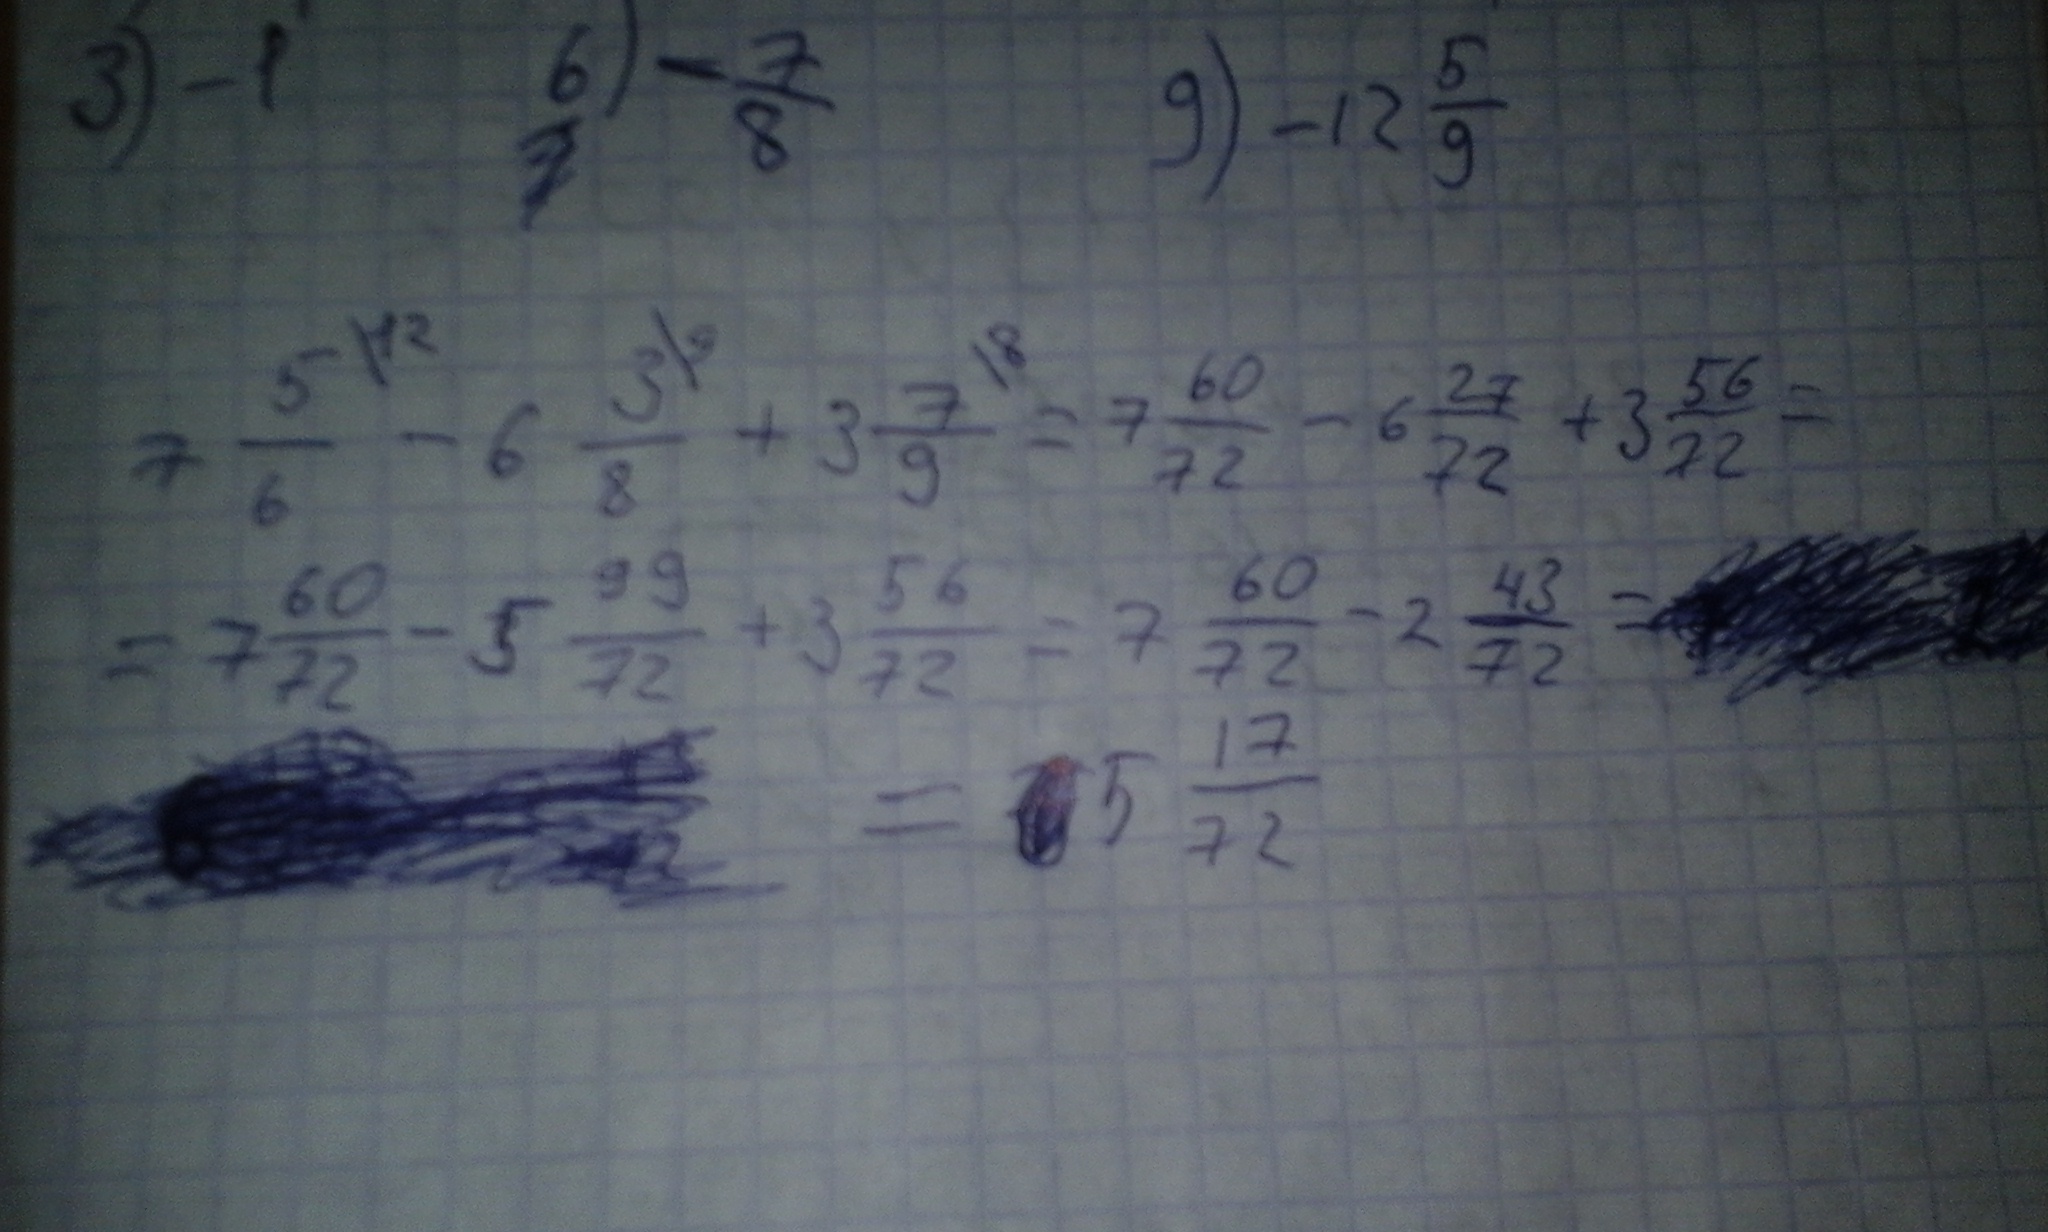 3) -1 6) -7/8 9) -12 5/9
7 5/6 \12 - 6 3/8 \9 + 3 7/9 \8 = 7 60/72 - 6 27/72 + 3 56/72 =
= 7 60/72 - 5 99/72 + 3 56/72 = 7 60/72 - 2 43/72 =
= 5 17/72